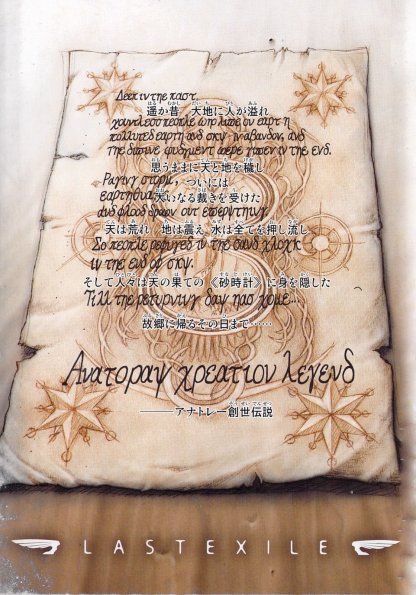 Δεεπ ιν τηε παστ.
遥か昔　大地に人が溢れ
χουντλεσσ πεοπλε ωηο λιϖεδ ον εαρτη
πολλυτεδ εαρτη ανδ σκψ ιν αβανδον, ανδ
τηε διϖινε ϕυδγμεντ ωερε γιϖεν ιν τηε ενδ.
思うままに天と地を穢し
Ραγινγ στορμ,
ついには
大いなる裁きを受けた
ανδ φλοοδ δροων ουτ εϖερψτηινγ
天は荒れ　地は震え　水は全てを押し流し
Σο πεοπλε ρεφυγεδ ιν τηε σανδ χλοχκ
ιν τηε ενδ οφ σκψ.
そして人々は天の果ての《砂時計》に身を隠した
Τιλλ τηε ρετυρνινγ δαψ ηασ χομε...
故郷に帰るその日まで……
Ανατοραψ χρεατιον λεγενδ
―――アナトレー創世伝説
LASTEXILE